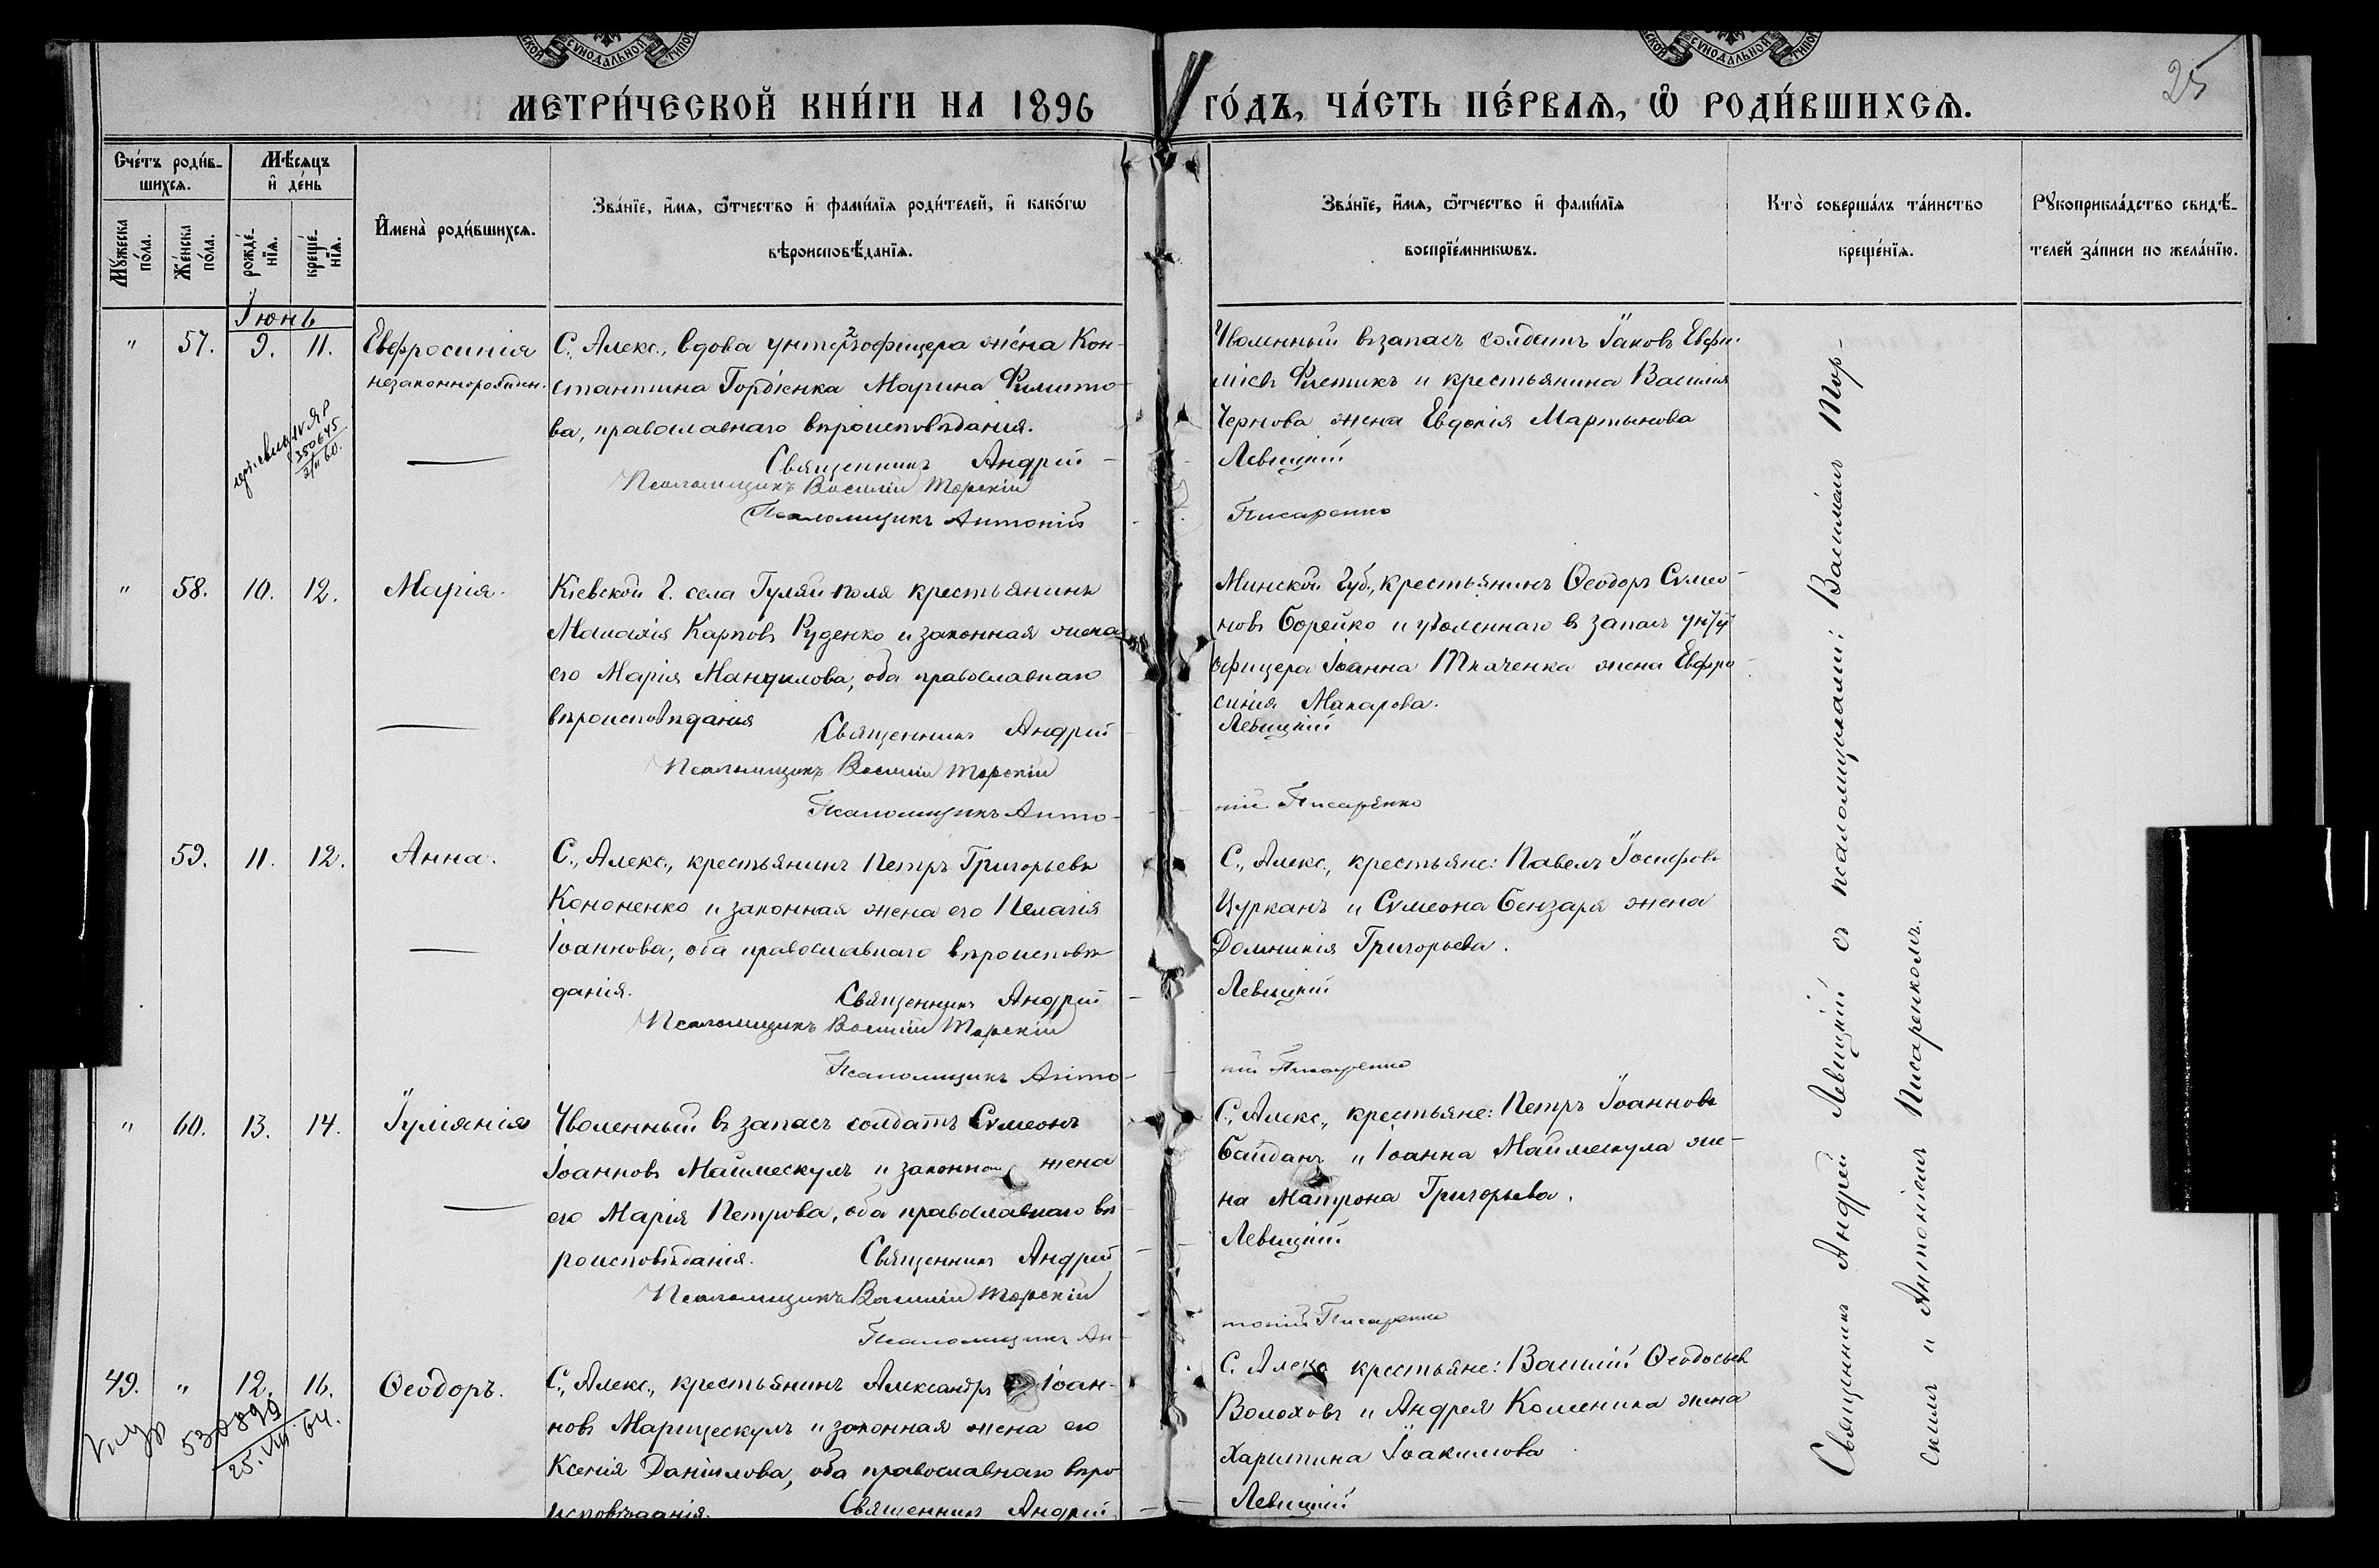 СУНОДАЛЬНОЙ
СУНОДАЛЬНОЙ
МЕТРИ́ЧЕСКОЙ КНИ́ГИ НА 1896
ГО́ДЪ, ЧА́СТЬ ПЕ́РВАѦ, Ѡ҆ РОДИ́ВШИХСѦ.
25
Сче́тъ роди́в-
шихсѧ.
Мѣ́сѧцъ
и҆ де́нь
Мꙋ́жеска
по́ла.
Же́нска
по́ла.
рожде́-
нїѧ.
креще́-
нїѧ.
И҆мена̀ роди́вшихсѧ.
Зва́нїе, и҆́мѧ, ѻ҆́тчество и҆ фами́лїѧ роди́телей, и҆ како́гѡ
вѣроисповѣ́данїѧ.
Зва́нїе, и҆́мѧ, ѻ҆́тчество и҆ фами́лїѧ
воспрїе́мникѡвъ.
Кто̀ соверша́лъ та́инство
креще́нїѧ.
Рꙋкоприкла́дство свидѣ́-
телей за́писи по жела́нїю.
Іюнь
" 57. 9. 11. Евфросинія
незаконнорожден.
С., Алекс., вдова унтеръ офицера жена Кон-
стантина Гордіенка Марина Филито-
ва, православнаго вѣроисповѣданія.
Священникъ Андрей
Псаломщикъ Василій Торскій
Псаломщикъ Антоній
350645
60.
Уволенный въ запасъ солдатъ Іаковъ Евфи-
міевъ и крестьянина Василія
Чернова жена Евдокія Мартынова
Левицкій
Писаренко
" 58. 10. 12. Марія.
Кіевской г. села Гуляй-поля крестьянинъ
Малахія Карповъ Руденко и законная жена
его Марія, оба православнаго
вѣроисповѣданія Священникъ Андрей
Псаломщикъ Василій Торскій
Псаломщикъ Анто-
Минской Губ., крестьянинъ Ѳеодоръ Сѵмео-
новъ Борейко и уволеннаго въ запасъ
офицера Іоанна Ткаченка жена Евфро-
синія Макарова.
Левицкій
ній Писаренко
59. 11. 12. Анна.
С., Алекс., крестьянинъ Петръ Григорьевъ
Кононенко и законная жена его Пелагія
Іоаннова, оба православнаго вѣроисповѣ-
данія. Священникъ Андрей
Псаломщикъ Василій Торскій
Псаломщикъ Анто-
С., Алекс., крестьяне: Павелъ Іосифовъ
Цурканъ и Сѵмеона Бензаря жена
Домникія Григорьева.
Левицкій
ній Писаренко
" 60. 13. 14. Іуліанія
Уволенный въ запасъ солдатъ Сѵмеонъ
Іоанновъ Маймескулъ и законная жена
его Марія Петрова, оба православнаго вѣ-
роисповѣданія. Священникъ Андрей
Псаломщикъ Василій Торскій
Псаломщикъ Ан-
С., Алекс., крестьяне: Петръ Іоанновъ
Байданъ и Іоанна Маймескула же-
на Матрона Григорьева.
Левицкій
тоній Писаренко
49. " 12. 16. Ѳеодоръ.
530899
25.VIII.64.
С., Алекс., крестьянинъ Александръ Іоан-
новъ Марицескулъ и законная жена его
Ксенія Даніилова, оба православнаго вѣро-
исповѣданія. Священникъ Андрей
С. Алекс крестьяне: Василій Ѳеодосіевъ
Волоховъ и Андрея жена
Харитина Іоакимова
Левицкій
Священникъ Андрей Левицкій съ псаломщиками: Василіемъ Тор-
скимъ и Антоніемъ Писаренкомъ.